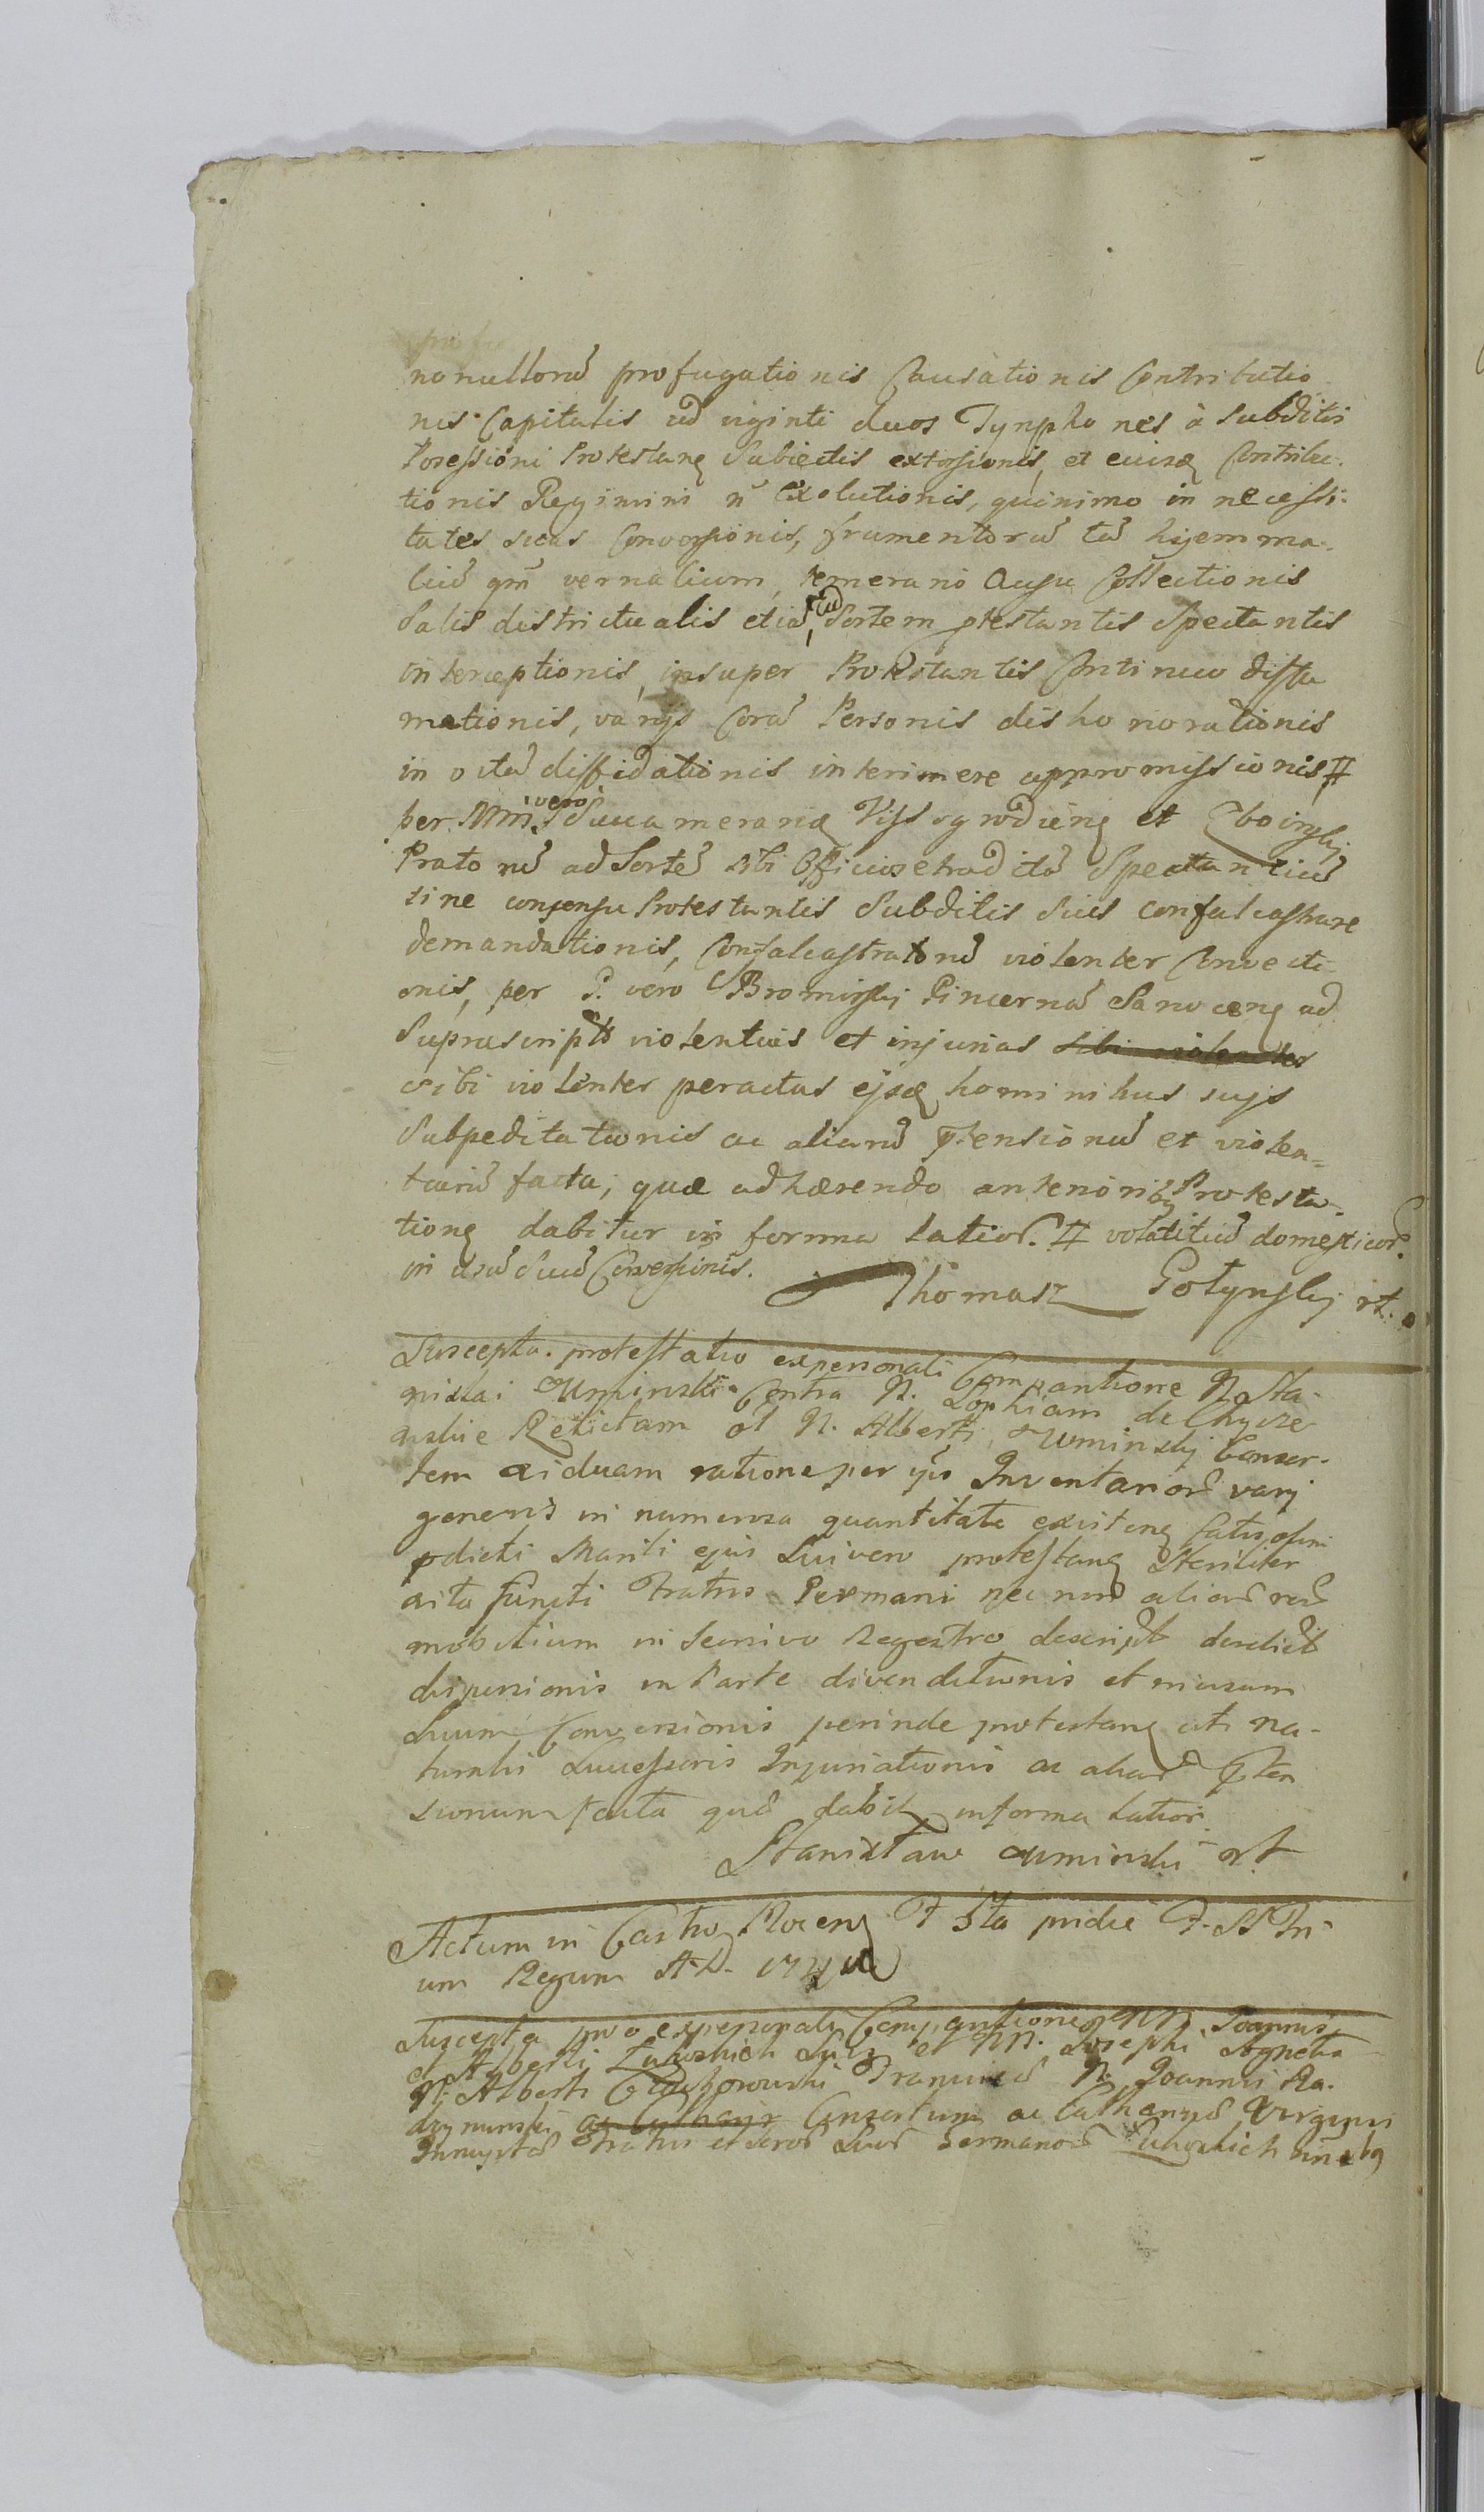 nonullorũ profugationis Causationis Contributio
nis Capitalis ad viginti duos Tynpho nes à Subditis
Possessioni Protestanę Subiectis extorsionis, et eiusdę Contribu-
tionis Regimini ñ Exolutionis, quinimo in necessi-
tates suas Conversionis, frumentorũ tã hyemma-
liũ qm̃ vernalium, temerario Ausu Collectionis
Salis districtualis etiã, ad Sortem ptestantis Spectantis
interceptionis, insuper Protestantis Continuo diffa
mationis, varijs Corã Personis dishonorationis
in vitã diffidationis interimere appromissionis #
per Mm̃ vero Succamerariũ Vissogrodienę et Zboinskj
Pratorũ ad Sortẽ sibi Officiose traditã Spectantiũ
sine consensu Protestantis Subditis Suis confalcastrare
demandationis, Confalcastratorũ violenter Convecti-
onis, per P. vero Bromirskj Pincernã Sanocenę ad
Suprascriptas violentias et injurias sibi violenter
sibi violenter peractas ejsdę hominibus sujs
Subpeditationis ac aliarũ ptensionũ et violen-
tiarũ facta, quæ adhærendo anteriorib9 Protesta-
tionę dabitur in forma latiori. # volatiliũ domesticorũ
in usũ Suũ Conversionis.
Thomasz Gołynskj rt.
Suscepta protestatio ex personali Comparitione N. Sta-
nislai Uminski Contra N. Sophiam de Chycze
wskie Relictam ol N. Alberti Uminskj Conser-
tem viduam ratione per ipsã Inventariorũ varij
generis in numerosa quantitate existenę Fatis olim
pdicti Mariti ejus Sui vero protestanę Steriliter
vita functi Fratris Germani nec non aliarũ rerũ
mobilium in Sensivo Regestro descript derelict
dispersionis in Parte divenditionis et in usum
Suum Conversionis perinde protestanę uti na-
turalis Successoris Injuriationis ac aliarũ pten
sionum facta quæ dabit in forma latiori.
Stanisław Uminski rt
Actum in Castro Plocenę F 3tia pridie F. SS Tri
um Regum A.D.
Suscepta pro ex personali Comparitione NN Joannis
et Alberti Sui et NN. Josephi Agneta
N. Alberti Francisca N. Joannis Ra-
dzyminski ac Catharij Consortum ac Catharinæ Virginis
Innuptæ Fratris et Sororũ Suarũ Germanorũ